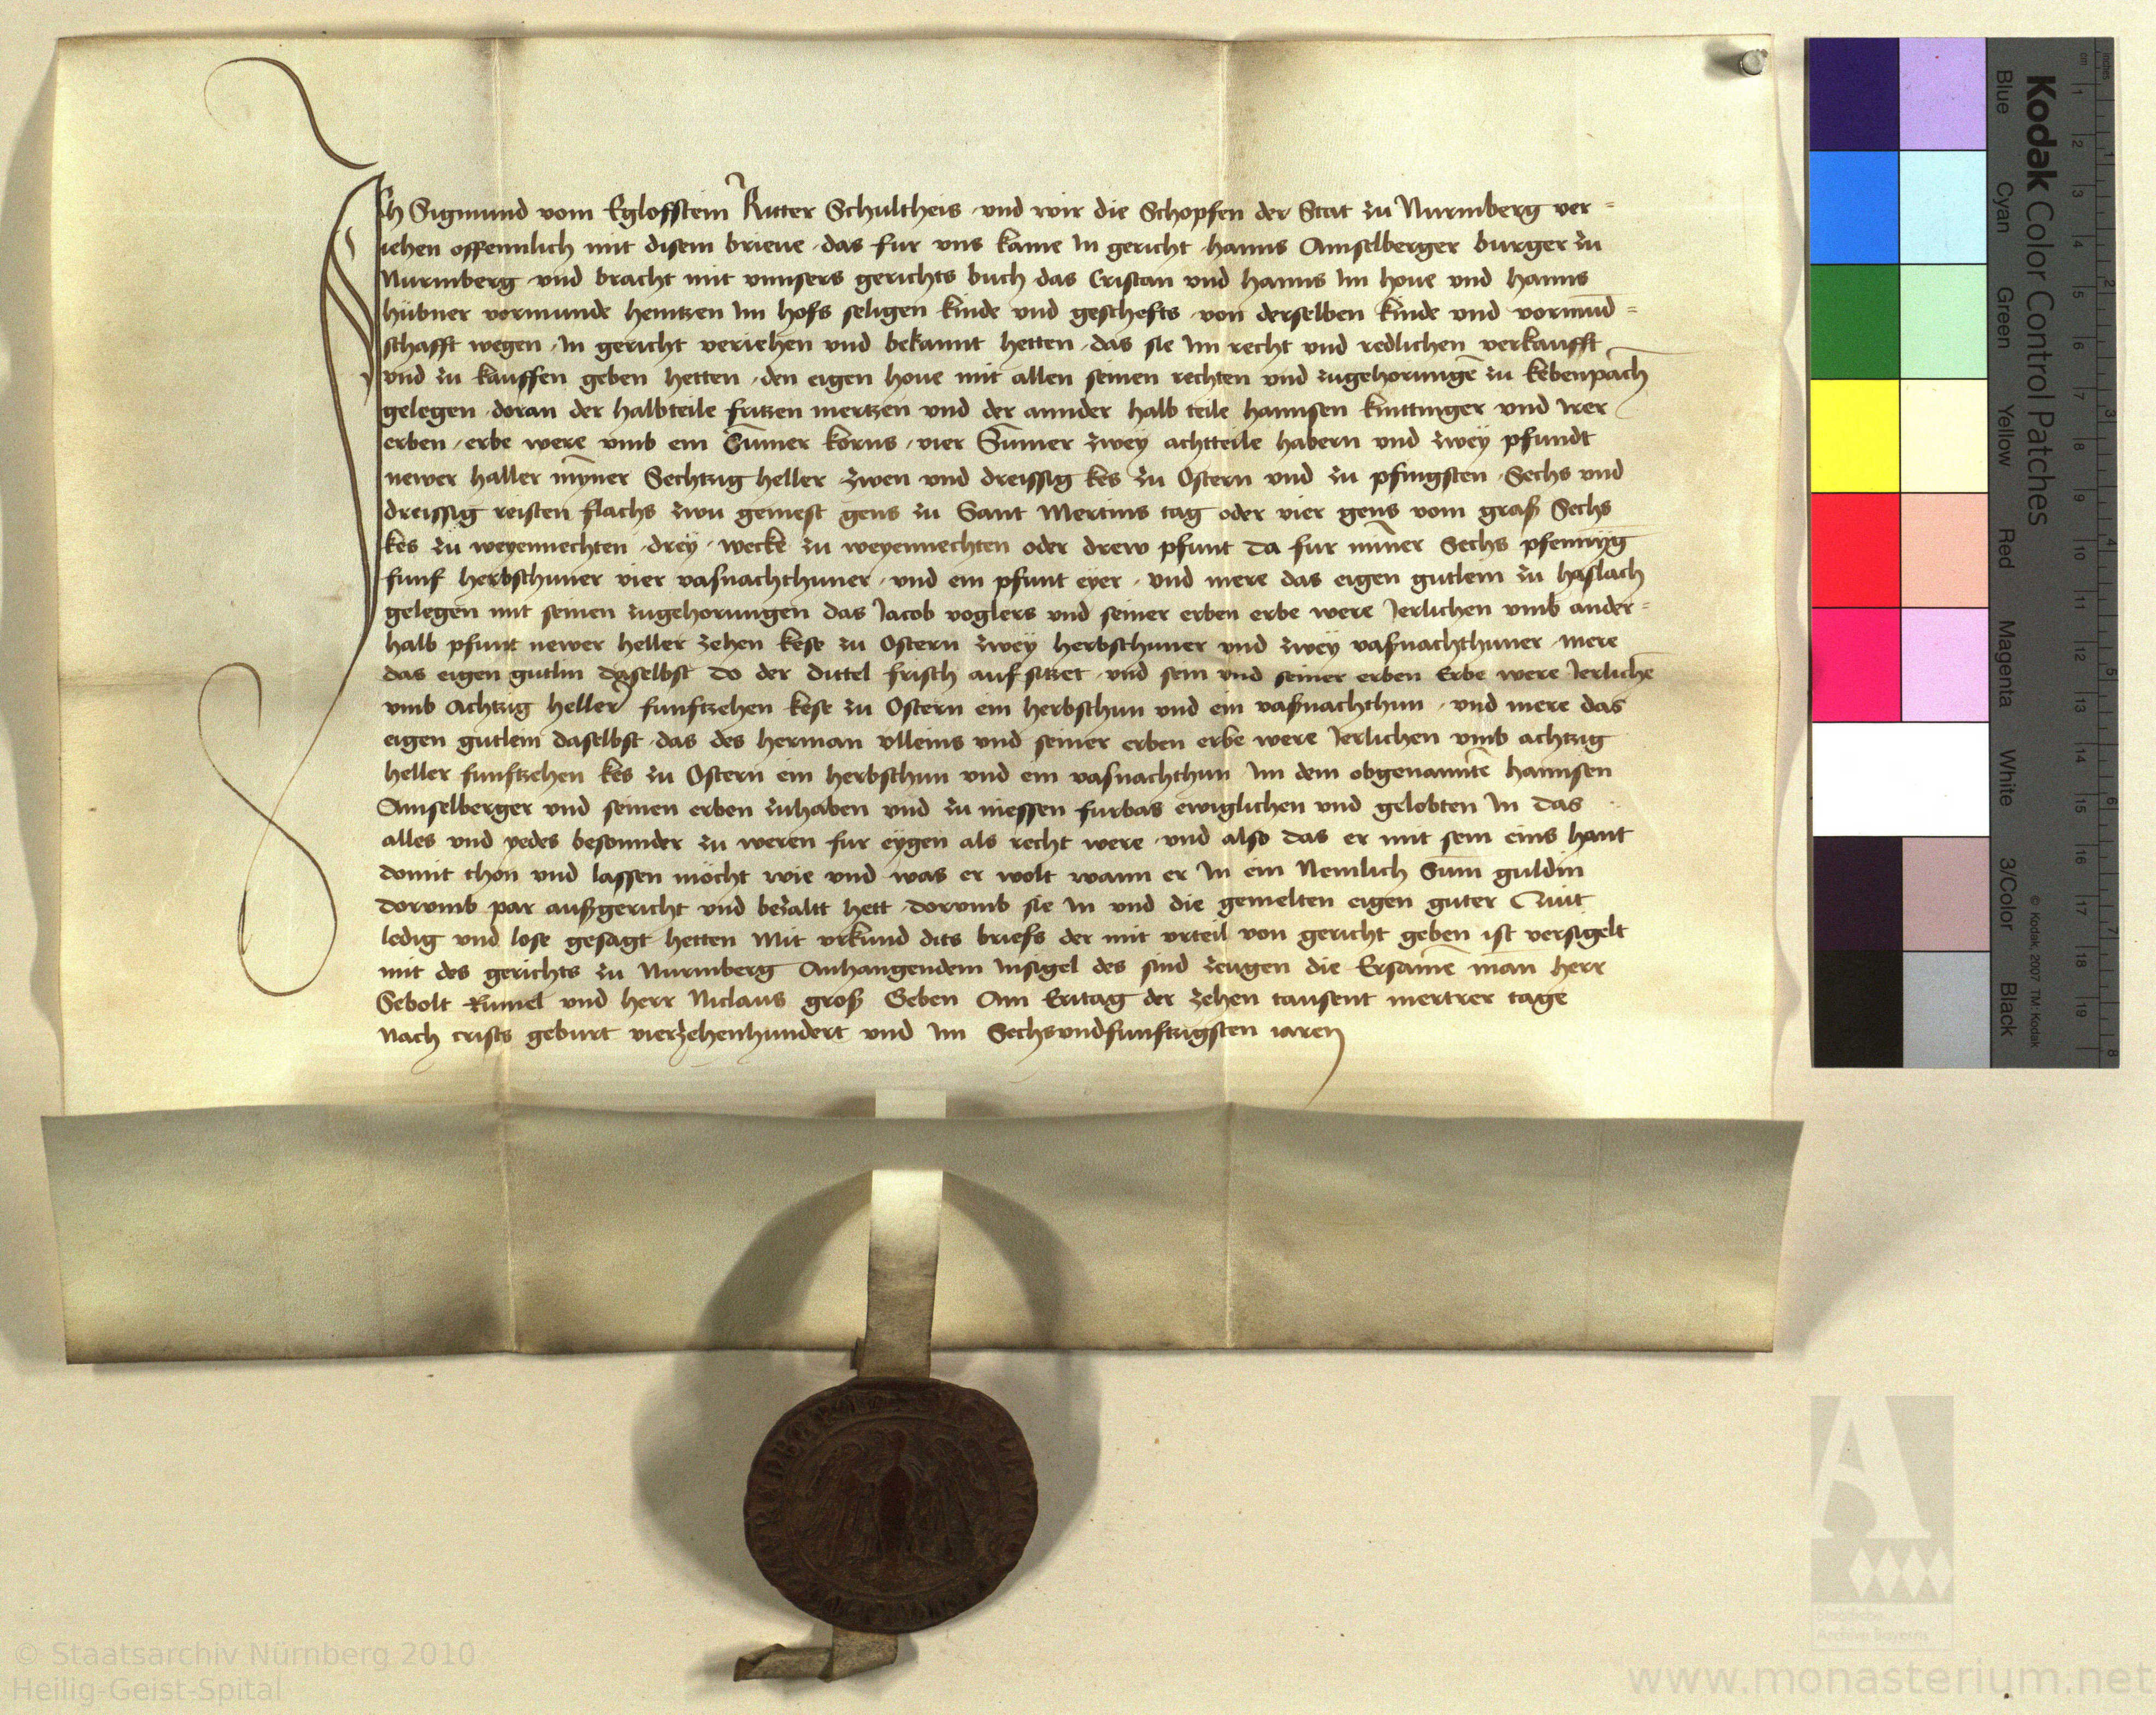 Ich Sigmund vom Eglofstein Ritter Schultheis und wir die Schopfen der Stat zu Nurmberg ver=
iehen offennlich mit disem brieue das fur vns kame In gericht hanns Amselberger burger zu
Nurmberg und bracht mit vnnsers gerichts buch das Cristan und hanns Im houe und hanns
hübner vormunde heintzen Im hofs seligen kinde und geschefts von derselben kinde und vormūd=
schafft wegen In gericht veriehen und bekannt hetten das sie Im recht und redlichen verkaufft
und zu kauffen geben hetten den eigen houe mit allen seinen rechten und zugehorungē zu kebenpach
gelegen doran der halbteile fritzen mertzen und der annder halb teile hannsen knttinger und Irer
erben erbe were vmb ein Sūmer korns vier Sūmer zwey achtteile habern und zwey pfundt
newer haller mȳner Sechtzig heller zwen und dreissig kes zu Ostern und zu pfingsten Sechs und
dreissig reisten flachs zwu gemest gens zu Sant Mertins tag oder vier gens vom graß Sechs
kes zu weyennechten drey wecke zu weyennechten oder drew pfunt da fur mīner Sechs pfennyg
funf herbsthuner vier vasnachthuner und ein pfunt eyer und mere das eigen gutlein zu haslach
gelegen mit seinen zugehorungen das Jacob voglers und seiner erben erbe were Jerlichen vmb ander=
halb pfunt newer heller zehen kese zu Ostern zwey herbsthuner und zwey vaßnachthuner mere
das eigen gutlin daselbst do der dittel frisch auf sitzet und sein und seiner erben Erbe were Jerlichē
vmb Achtzig heller funftzehen kese zu Ostern ein herbsthun und ein vaßnachthun und mere das
eigen gutlein daselbst das des herman vlleins und seiner erben erbe were Jerlichen vmb achtzig
heller funftzehen kes zu Ostern ein herbsthun und ein vasnachthun Im dem obgenantē hannsen
Amselberger und seinen erben zuhaben und zu niessen furbas ewiglichen und gelobten In das
alles und yedes besonnder zu weren fur eygen als recht were und also das er mit sein eins hant
domit thon und lassen möcht wie und was er wolt wann er In ein Nemlich Sum guldin
dorvmb par außgericht und bezaltt hett dorvmb sie In und die gemelten eigen guter Quit
ledig und lose gesagt hetten Mit vrkund dits briefs der mit vrteil von gericht geben ist versigelt
mit des gerichts zu Nurmberg Anhangendem Insigel des sind zeugen die Ersamē man herr
Sebolt Rumel und herr Niclaus groß Geben Am Eritag der zehen tausent mertrer tage
Nach crists geburt vierzehenhundert und Im Sechsvndfunftzigsten iaren
Kodak Color Control Patches
© Kodak, 2007 TM: Kodak
Blue Cyan Green Yellow Red Magenta White 3/Color Black
cm 1 2 3 4 5 6 7 8 9 10 11 12 13 14 15 16 17 18 19
inches 1 2 3 4 5 6 7 8
© Staatsarchiv Nürnberg 2010
Heilig-Geist-Spital
www.monasterium.net